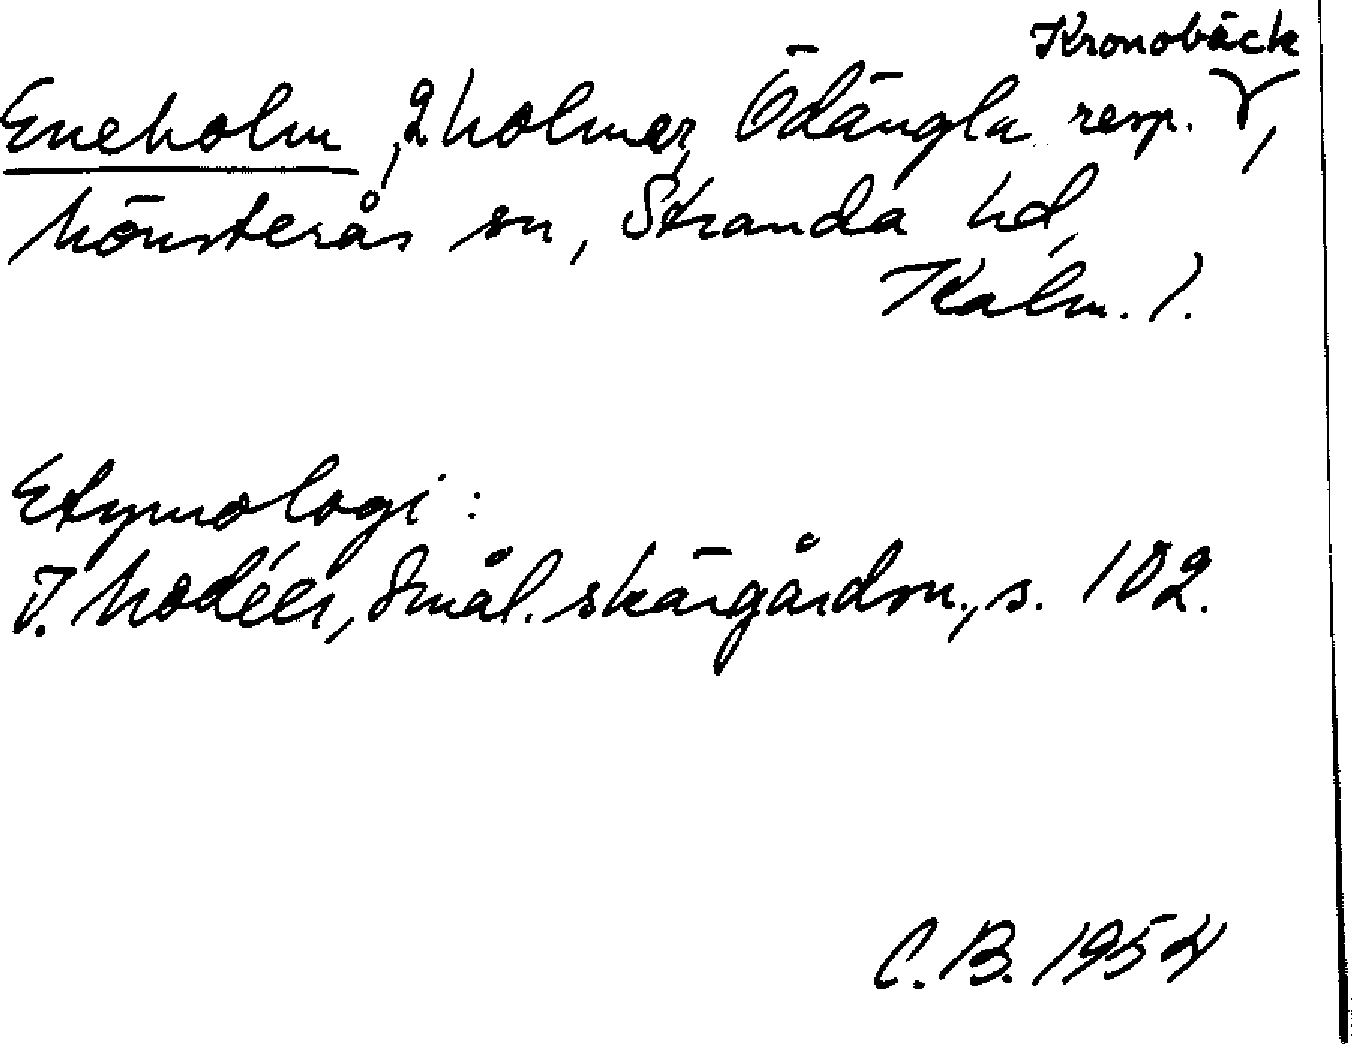 Kronobäck
Eneholm, 2 holmer, Ödängla resp. ,
Mönsterås sn, Stranda hd,
Kalm. l.
Etymologi:
I. Modéer, Smål. skärgårdsn., s. 102.
C. B. 1954